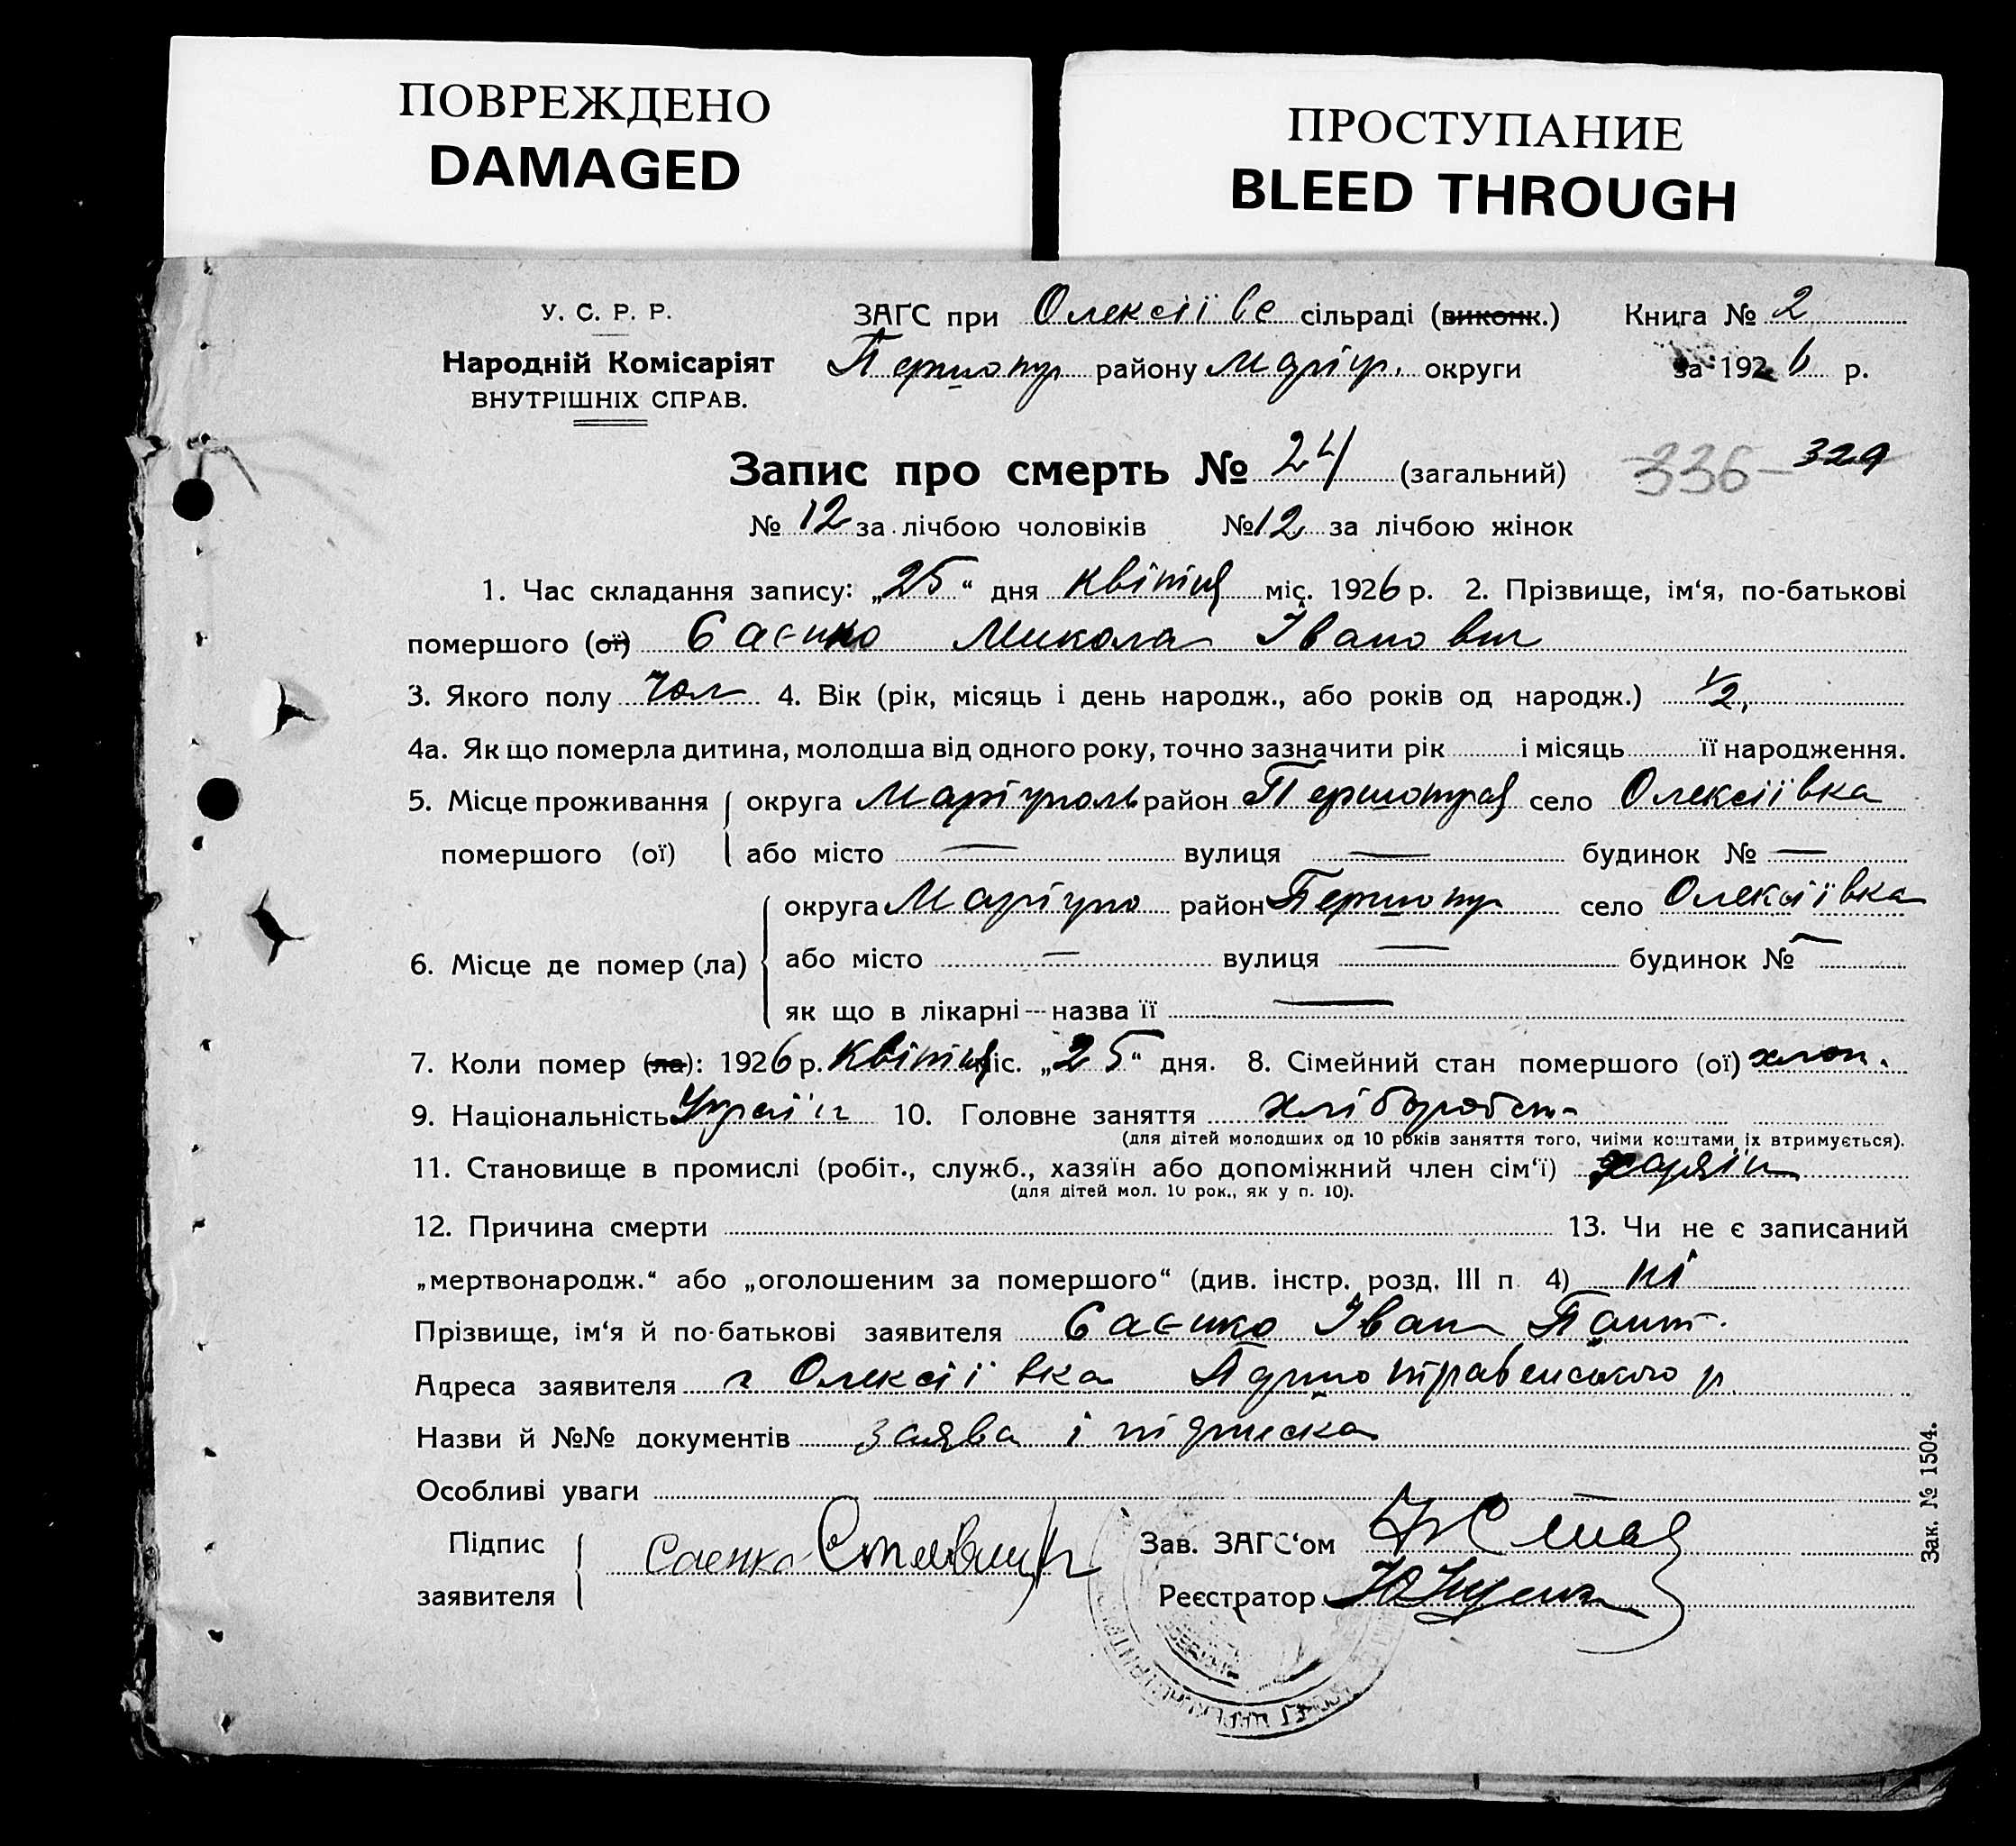 ПОВРЕЖДЕНО
DAMAGED
ПРОСТУПАНИЕ
BLEED THROUGH
У. С. Р. Р.
Народній Комісаріят
ВНУТРІШНІХ СПРАВ.
ЗАГС при Олексіївс сільраді (виконк.)
Першотр району Маріуп. округи
Книга № 2
за 1926 р.
Запис про смерть № 24 (загальний)
336 — 329
№ 12 за лічбою чоловіків № 12 за лічбою жінок
1. Час складання запису: „25“ дня квітня міс. 1926 р. 2. Прізвище, ім‘я, по-батькові
помершого (ої) Саєнко Микола Іванович
3. Якого полу чол 4. Вік (рік, місяць і день народж., або років од народж.) 1/2,
4а. Як що померла дитина, молодша від одного року, точно зазначити рік і місяць її народження.
5. Місце проживання помершого (ої) округа Маріуполь район Першотрав село Олексіївка
або місто — вулиця — будинок № —
6. Місце де помер (ла) округа Маріупо район Першотр село Олексіївка
або місто — вулиця — будинок № —
як що в лікарні --- назва її —
7. Коли помер (ла): 1926 р. квітня міс. „25“ дня. 8. Сімейний стан помершого (ої) хлоп.
9. Національність Україн 10. Головне заняття хліборобст
(для дітей молодших од 10 років заняття того, чиїми коштами їх втримується).
11. Становище в промислі (робіт., служб., хазяїн або допоміжний член сім‘ї) хазяїн
(для дітей мол. 10 рок., як у п. 10).
12. Причина смерти 13. Чи не є записаний
„мертвонародж.“ або „оголошеним за помершого“ (див. інстр. розд. III п 4) ні
Прізвище, ім‘я й по-батькові заявителя Саєнко Іван Пант.
Адреса заявителя с Олексіївка Першотравенського р.
Назви й №№ документів заява і підписка
Особливі уваги
Підпис заявителя Саенко
Зав. ЗАГС‘ом
Реєстратор
Зак. № 1504.